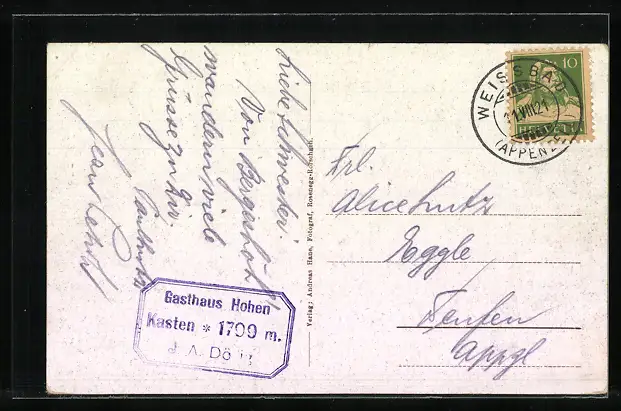 Liebe Schwester!
Von Bergeshöh'
wandern viele
Grüsse zu Dir.
Gasthaus Hohen
Kasten * 1799 m.
J. A. Dö
Verlag: Andreas Hane, Fotograf, Rosenegg-Rorschach.
WEISSBAD
11.VIII.21
(APPENZ
10
HELVETIA
Frl.
Alice Lutz
Eggle
Teufen
Appzl